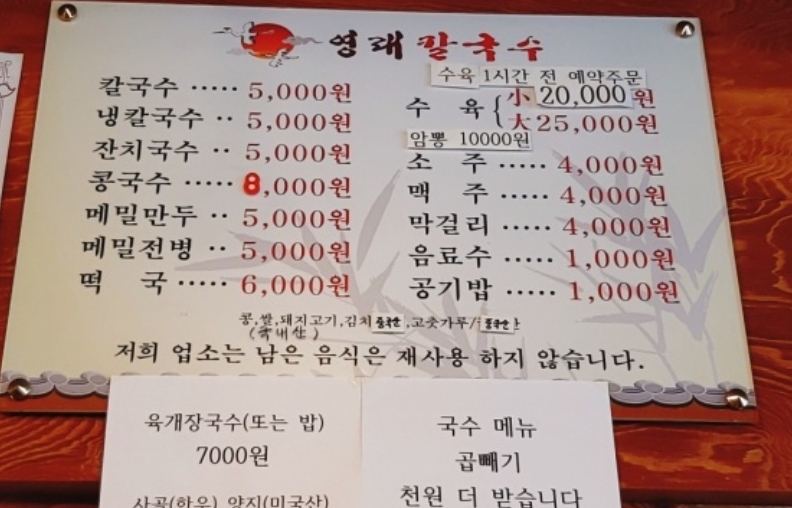 영래 칼국수
칼국수 ····· 5,000원
냉칼국수 ·· 5,000원
잔치국수 ·· 5,000원
콩국수 ····· 8,000원
메밀만두 ·· 5,000원
메밀전병 ·· 5,000원
떡 국 ····· 6,000원
수육 1시간 전 예약주문
수 육 { 小 20,000원
大 25,000원
암뽕 10000원
소 주 ····· 4,000원
맥 주 ····· 4,000원
막걸리 ····· 4,000원
음료수 ····· 1,000원
공기밥 ····· 1,000원
콩,쌀,돼지고기,김치 중국산,고춧가루/중국산
(국내산)
저희 업소는 남은 음식은 재사용 하지 않습니다.
육개장국수(또는 밥)
7000원
사골(한우) 양지(미국산)
국수 메뉴
곱빼기
천원 더 받습니다